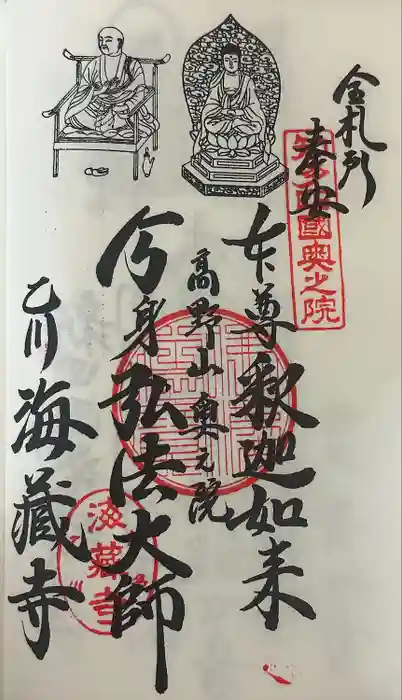 全札所
國奥之院
本尊 釈迦如来
高野山奥之院
分身 弘法大師
乙川 海藏寺
海藏寺